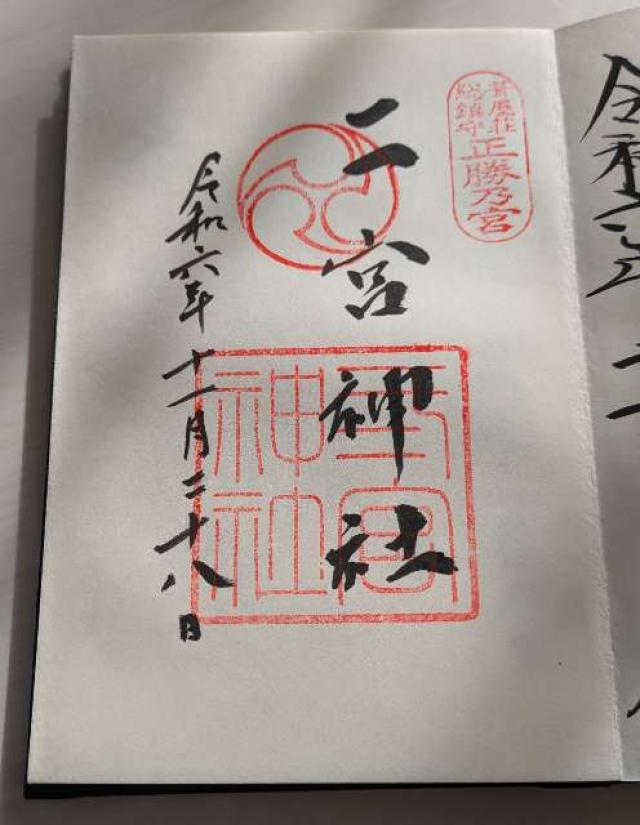 葺屋荘
総鎮守
正勝乃宮
二宮神社
二宮
神社
令和六年十一月二十八日